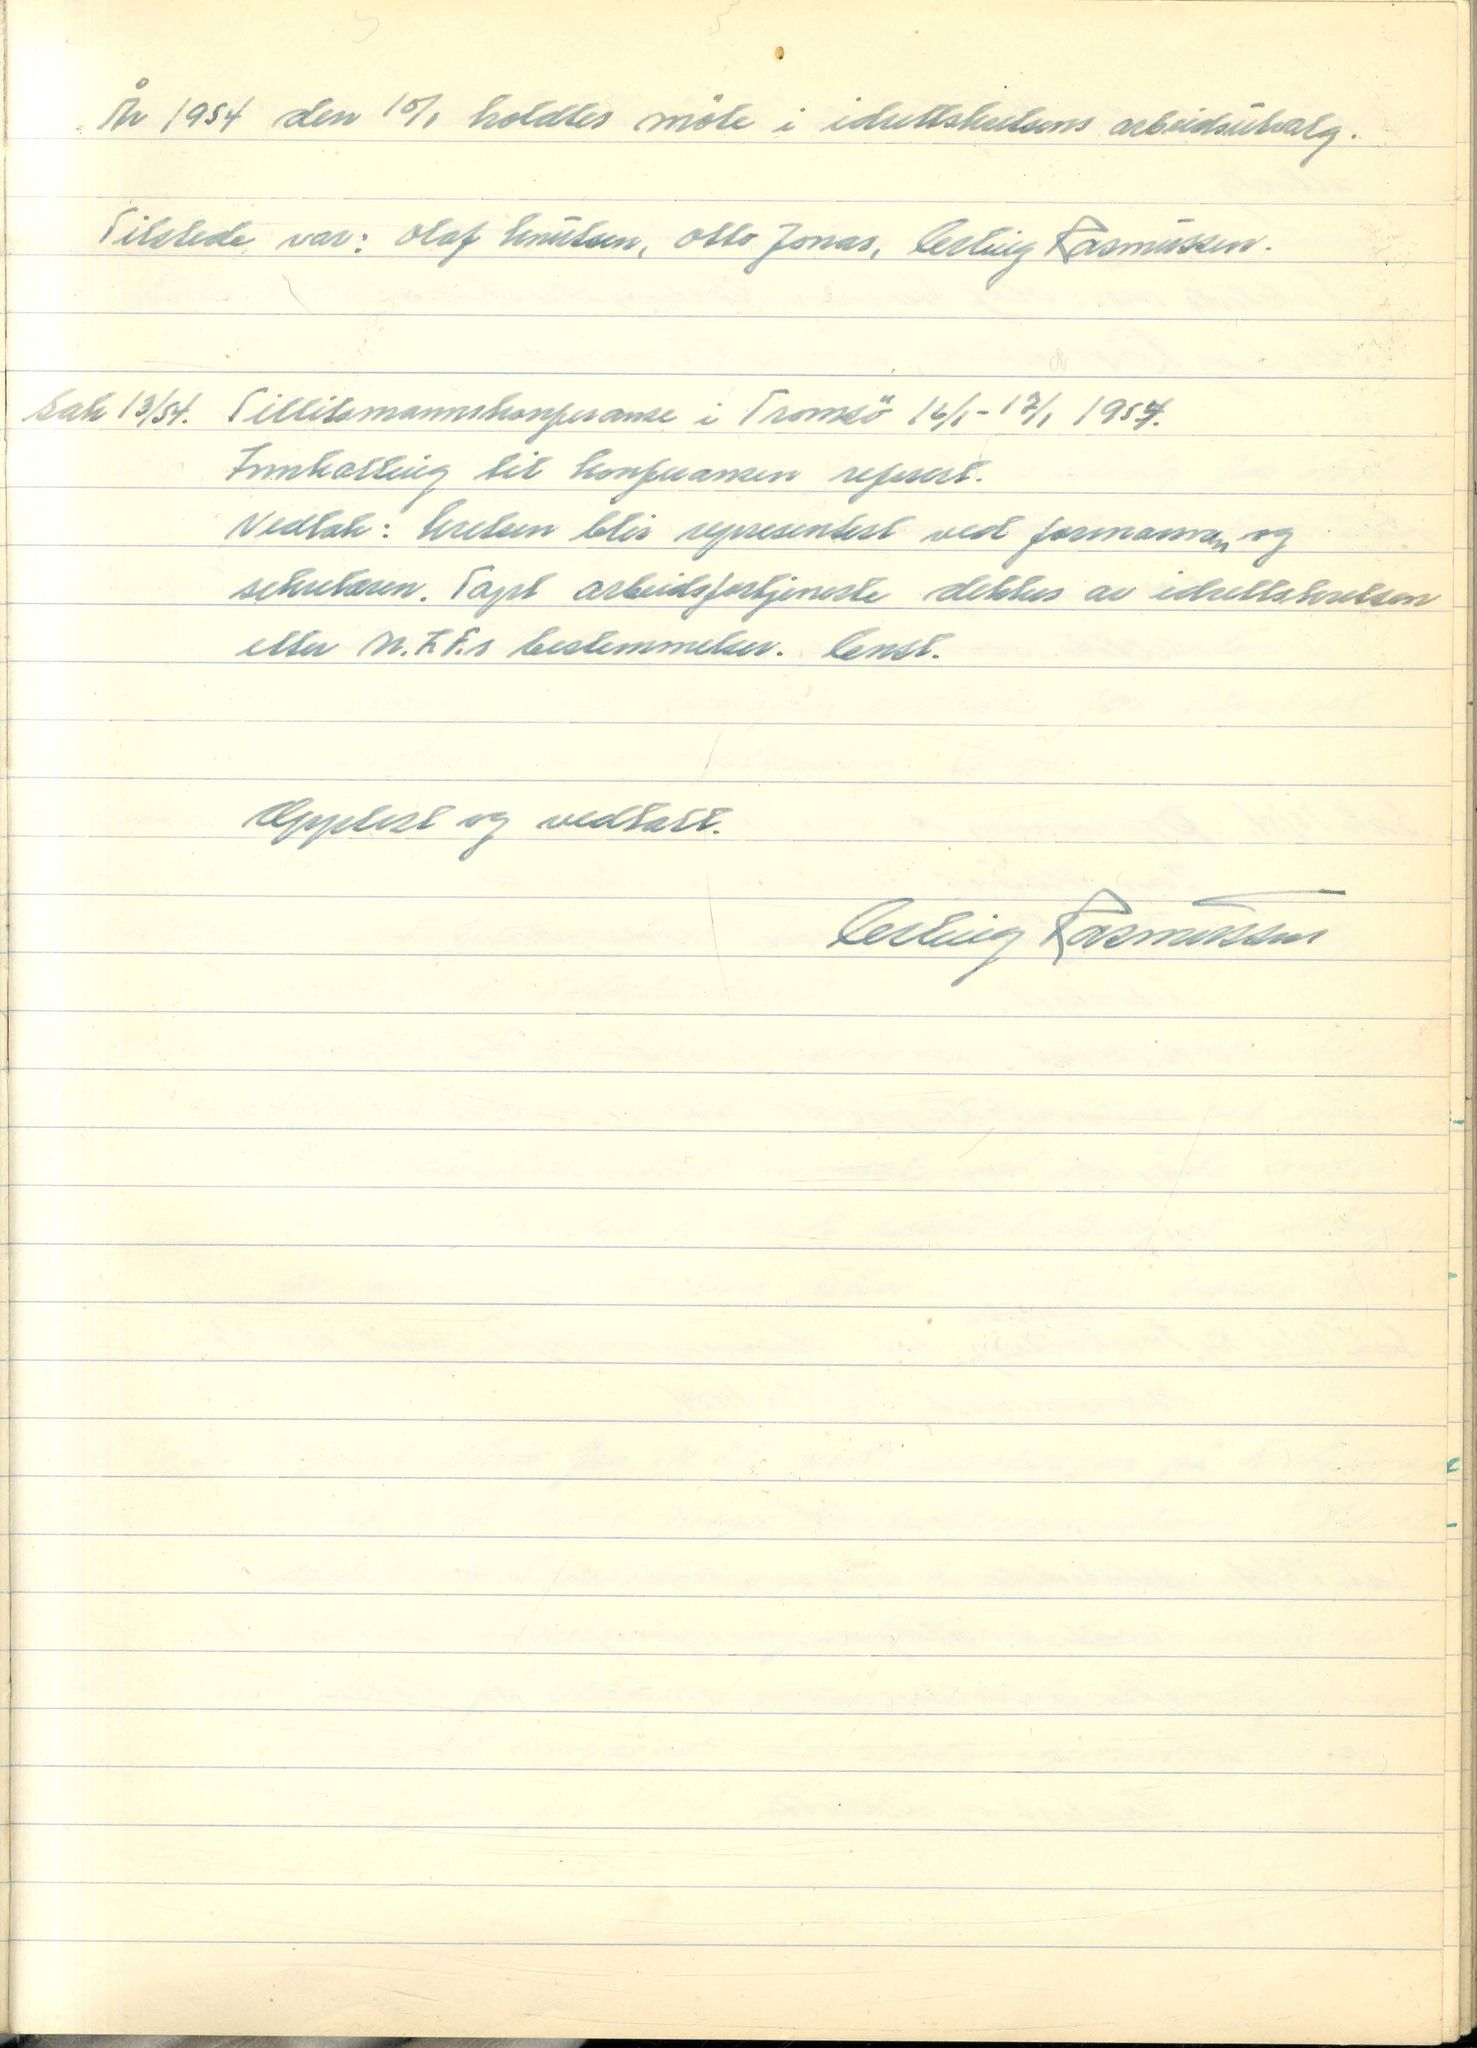 År 1954 den 10/1 holdtes möte i idrettskretsens arbeidsutvalg.
Tilstede var: Olaf Knutsen, Otto Jonas, Erling Rasmussen.
Sak 13/54. Tillitsmannskonferanse i Tromsö 16/1-17/1 1954.
Innkalling til konferansen referert.
Vedtak: Kretsen blir representert ved formannen og
sekretæren. Tapt arbeidsfortjeneste dekkes av idrettskretsen
etter N.I.F.s bestemmelser. Enst.
Opplest og vedtatt.
Erling Rasmussen